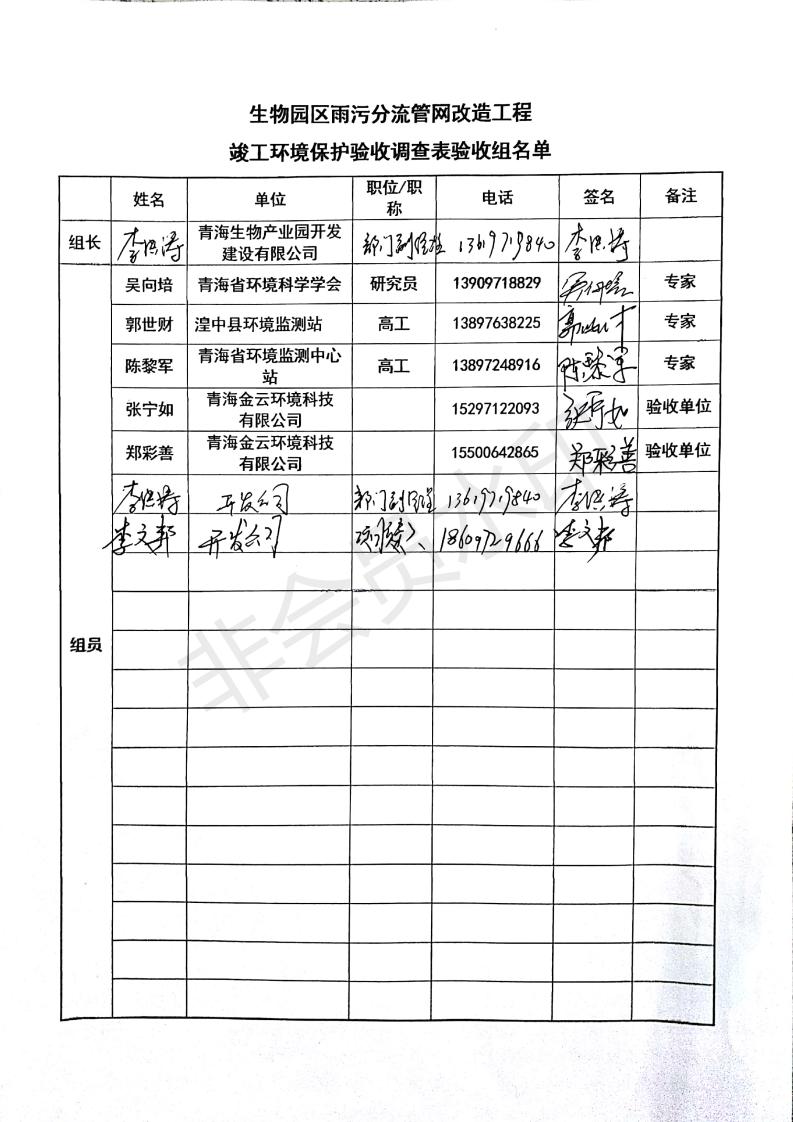 生物园区雨污分流管网改造工程
竣工环境保护验收调查表验收组名单
姓名 单位 职位/职称 电话 签名 备注
组长 李洪涛 青海生物产业园开发建设有限公司 部门副经理 13619719840 李洪涛
组员
吴向培 青海省环境科学学会 研究员 13909718829 吴向培 专家
郭世财 湟中县环境监测站 高工 13897638225 郭世才 专家
陈黎军 青海省环境监测中心站 高工 13897248916 陈黎军 专家
张宁如 青海金云环境科技有限公司 15297122093 张宁如 验收单位
郑彩善 青海金云环境科技有限公司 15500642865 郑彩善 验收单位
李洪涛 开发公司 部门副经理 13619719840 李洪涛
李文邦 开发公司 18609729666 李文邦
非会员水印